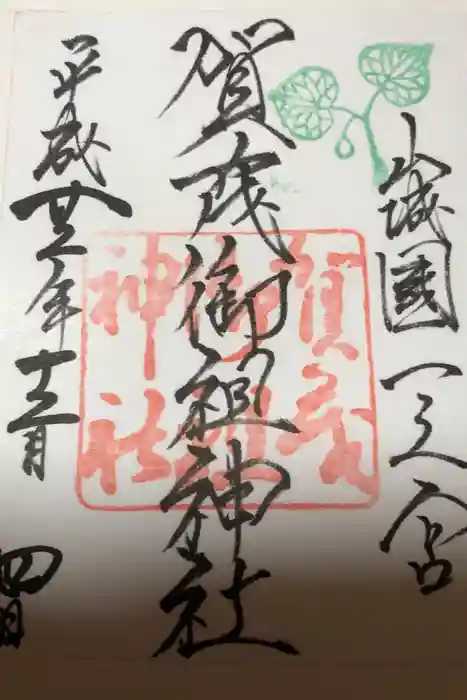 山城國一之宮
賀茂御祖神社
平成廿二年十二月四日
賀茂
御祖
神社